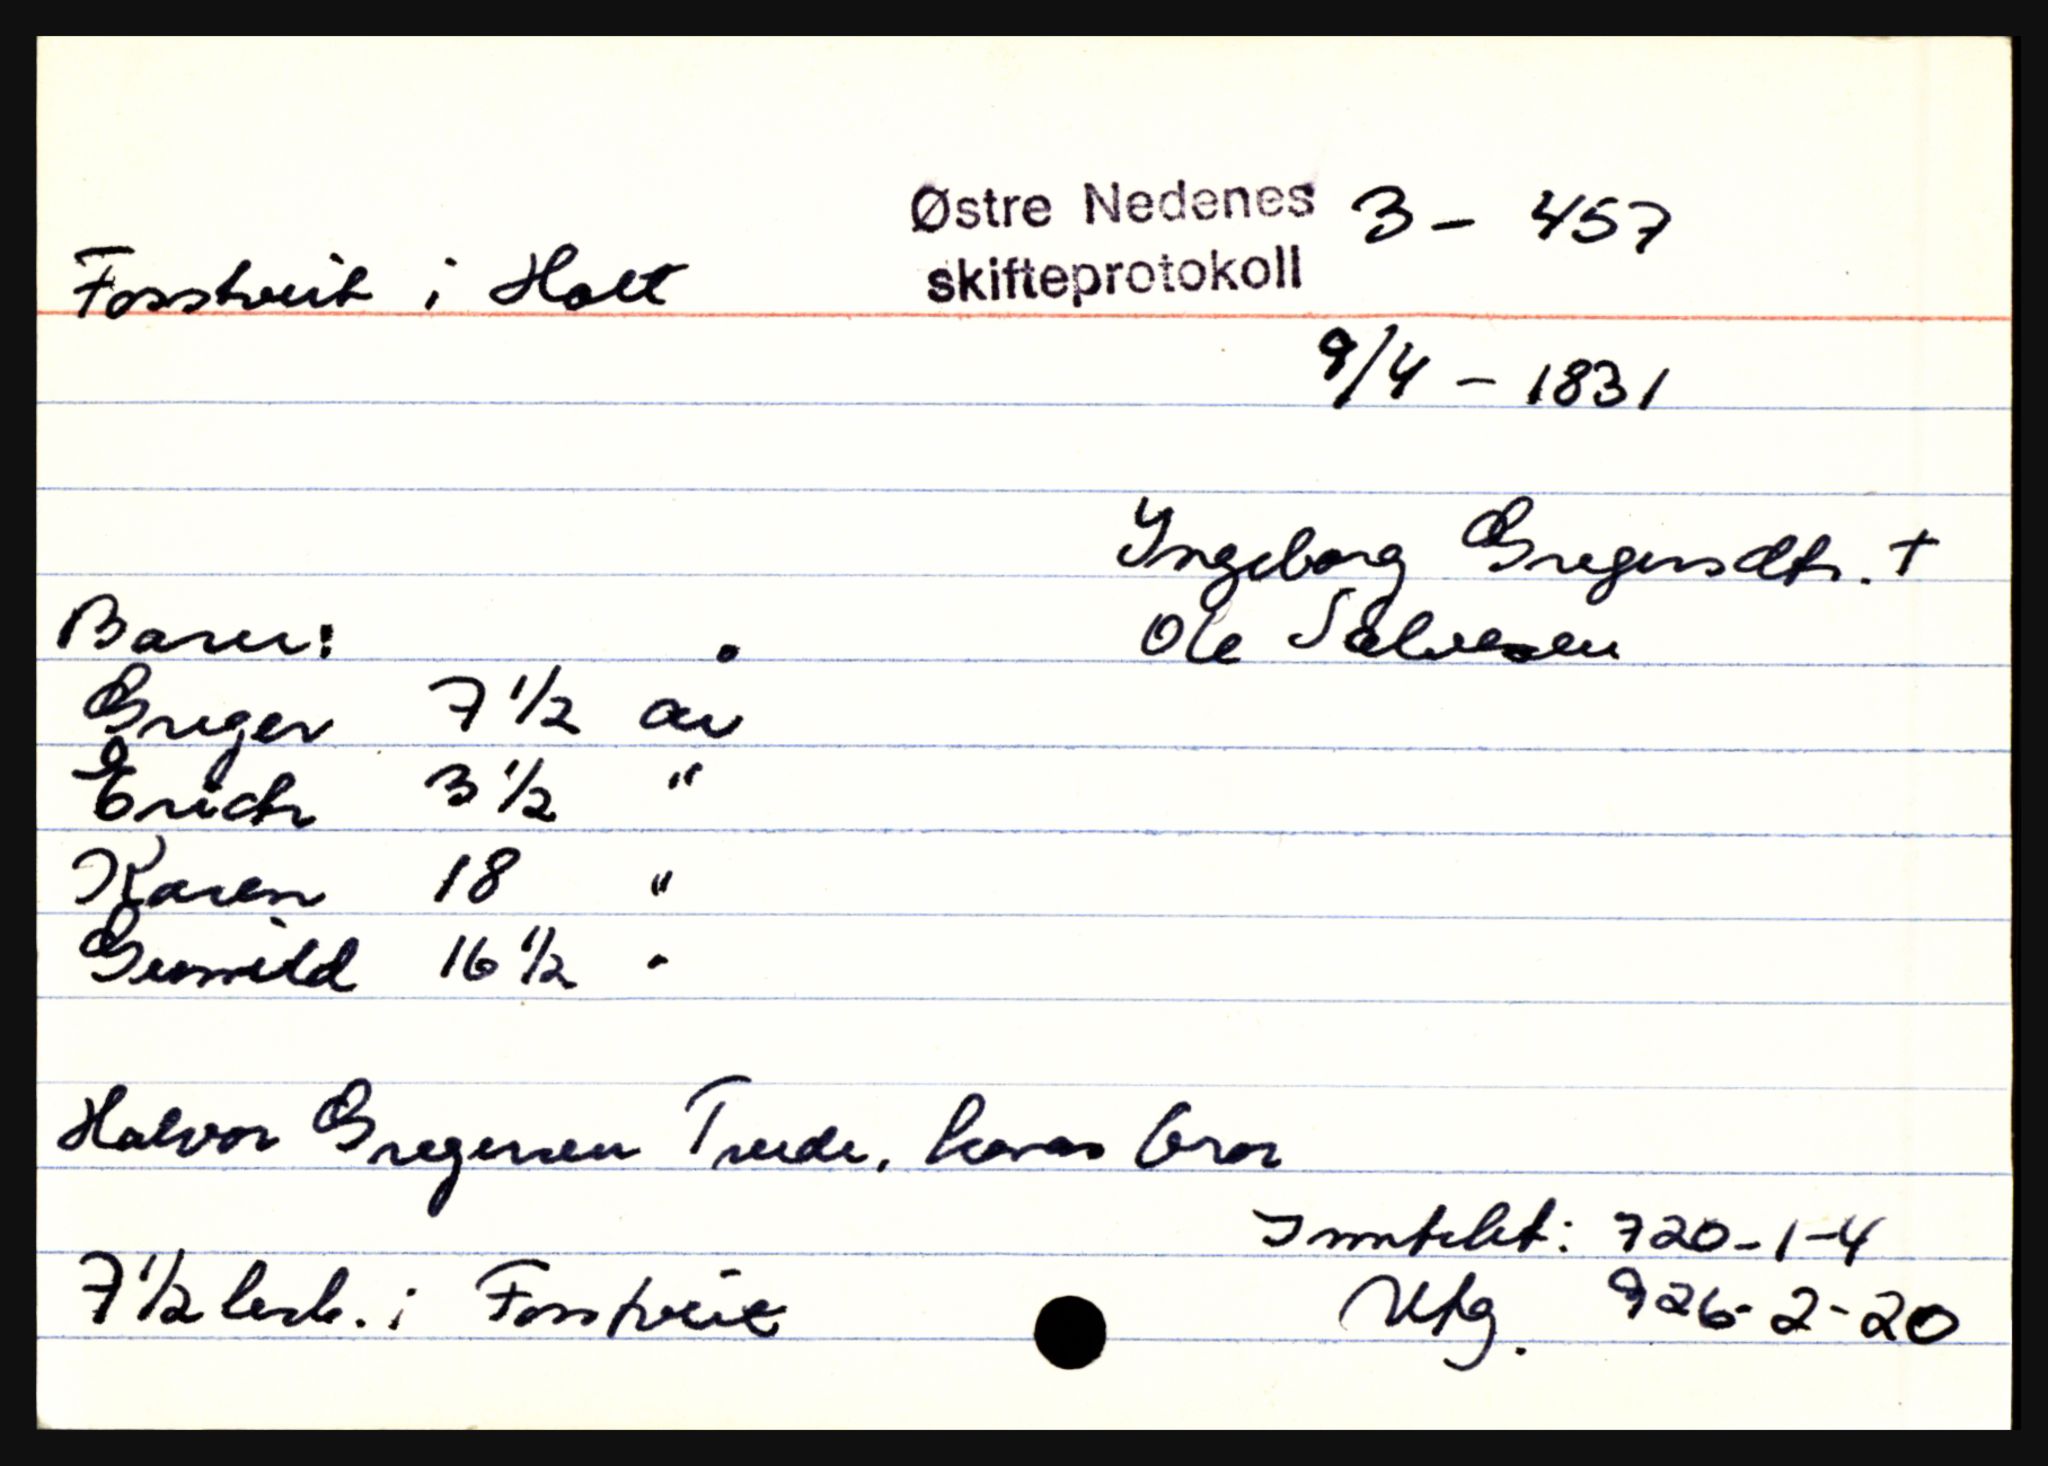 Østre Nedenes 3 - 457
Fosstveit i Holt skifteprotokoll
9/4 - 1831
Ingeborg Gregersdtr. +
Barn: Ole Salvesen
Greger 7 1/2 år
Erich 3 1/2 "
Karen 18 "
Gunnild 16 1/2 "
Halvor Gregersen Trede, konas bror
Inntekt: 720-1-4
7 1/2 lesb. i Fosstveit Utg. 926-2-20